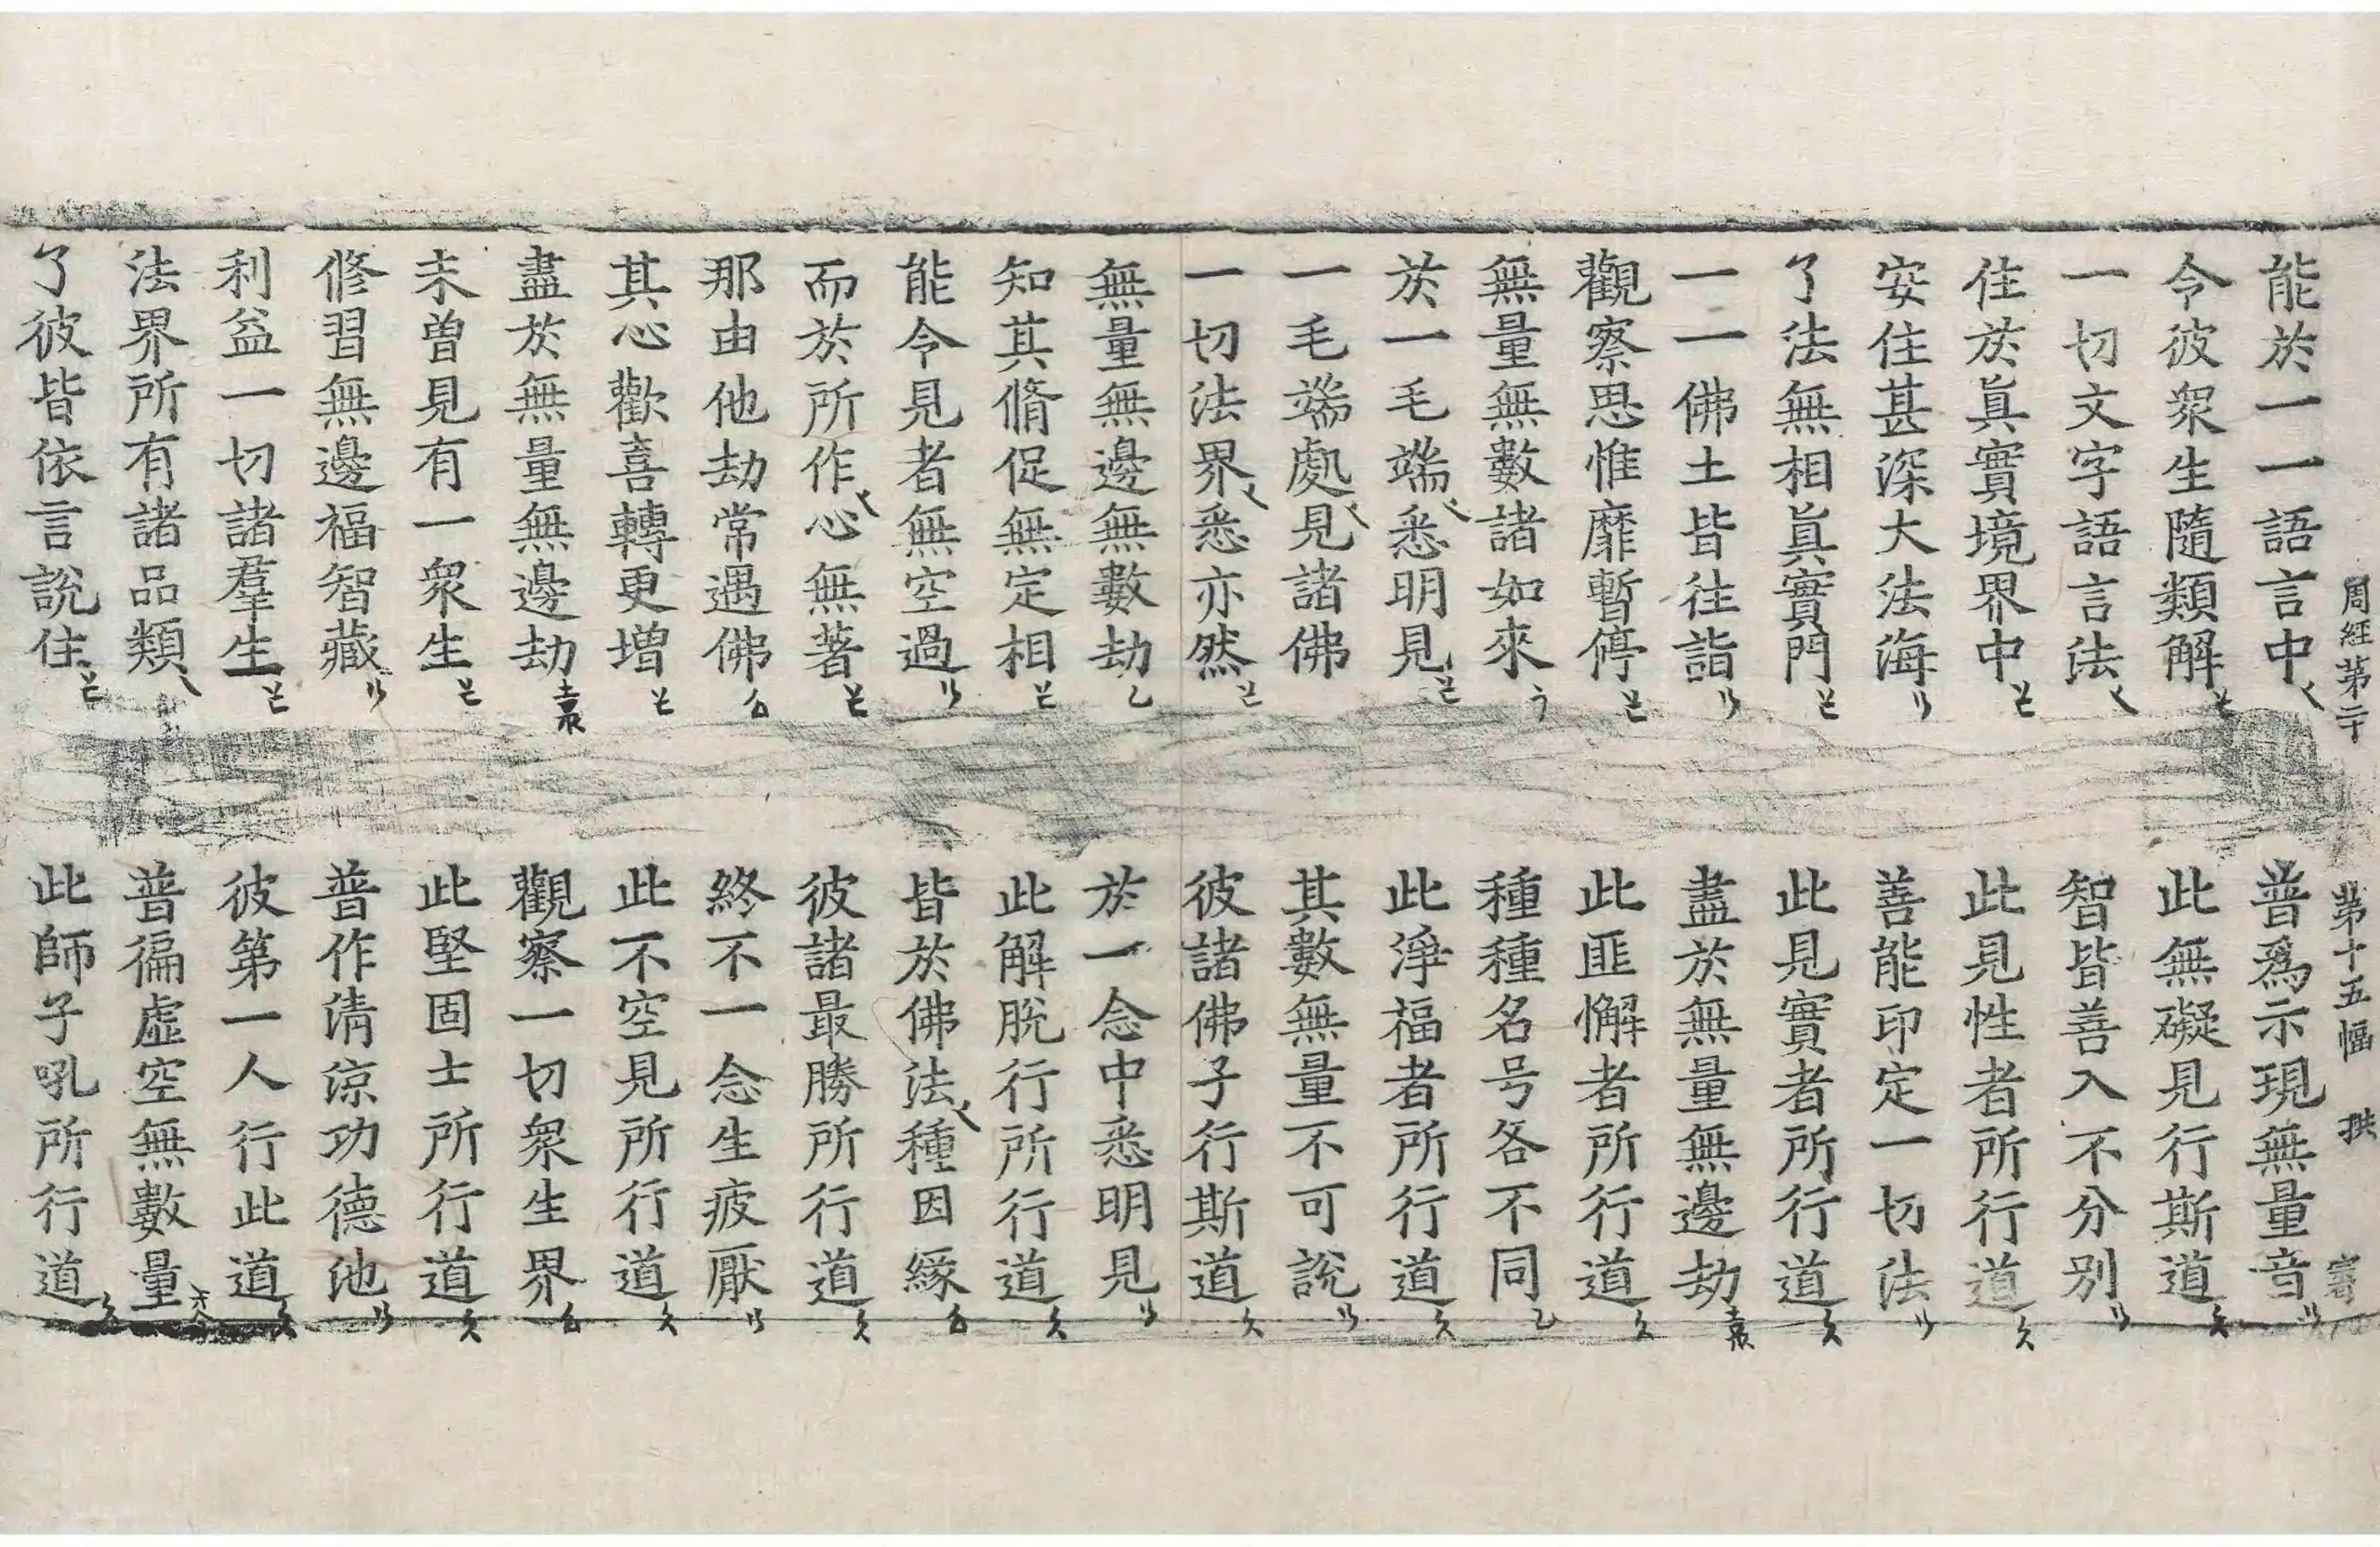 周經第二十 第十五幅 拱
能於一一語言中 普爲示現無量音
令彼衆生隨類解 此無礙見行斯道
一切文字語言法 智皆善入不分別
住於眞實境界中 此見性者所行道
安住甚深大法海 善能印定一切法
了法無相眞實門 此見實者所行道
一一佛土皆往詣 盡於無量無邊劫
觀察思惟靡暫停 此匪懈者所行道
無量無數諸如來 種種名号各不同
於一毛端悉明見 此淨福者所行道
一毛端處見諸佛 其數無量不可說
一切法界悉亦然 彼諸佛子行斯道
無量無邊無數劫 於一念中悉明見
知其脩促無定相 此解脫行所行道
能令見者無空過 皆於佛法種因緣
而於所作心無著 彼諸最勝所行道
那由他劫常遇佛 終不一念生疲厭
其心歡喜轉更增 此不空見所行道
盡於無量無邊劫 觀察一切衆生界
未曾見有一衆生 此堅固士所行道
修習無邊福智藏 普作清涼功德池
利益一切諸羣生 彼第一人行此道
法界所有諸品類 普徧虛空無數量
了彼皆依言說住 此師子吼所行道